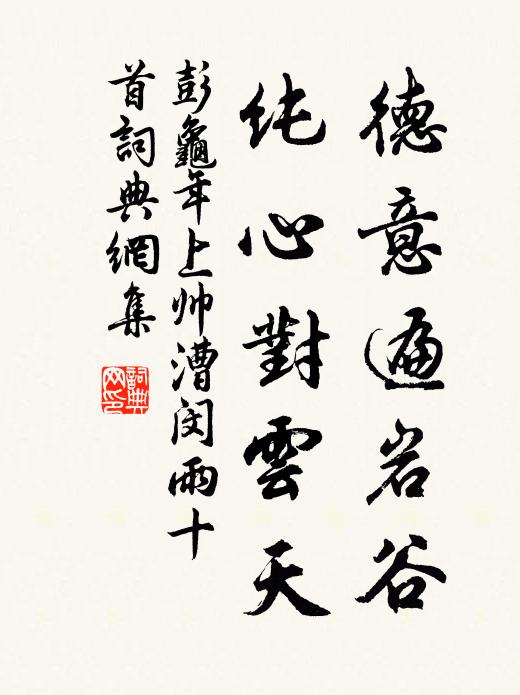 德意遍岩谷
纯心對雲天
彭龜年上帅漕闵雨十
首詞典網集
詞典网印